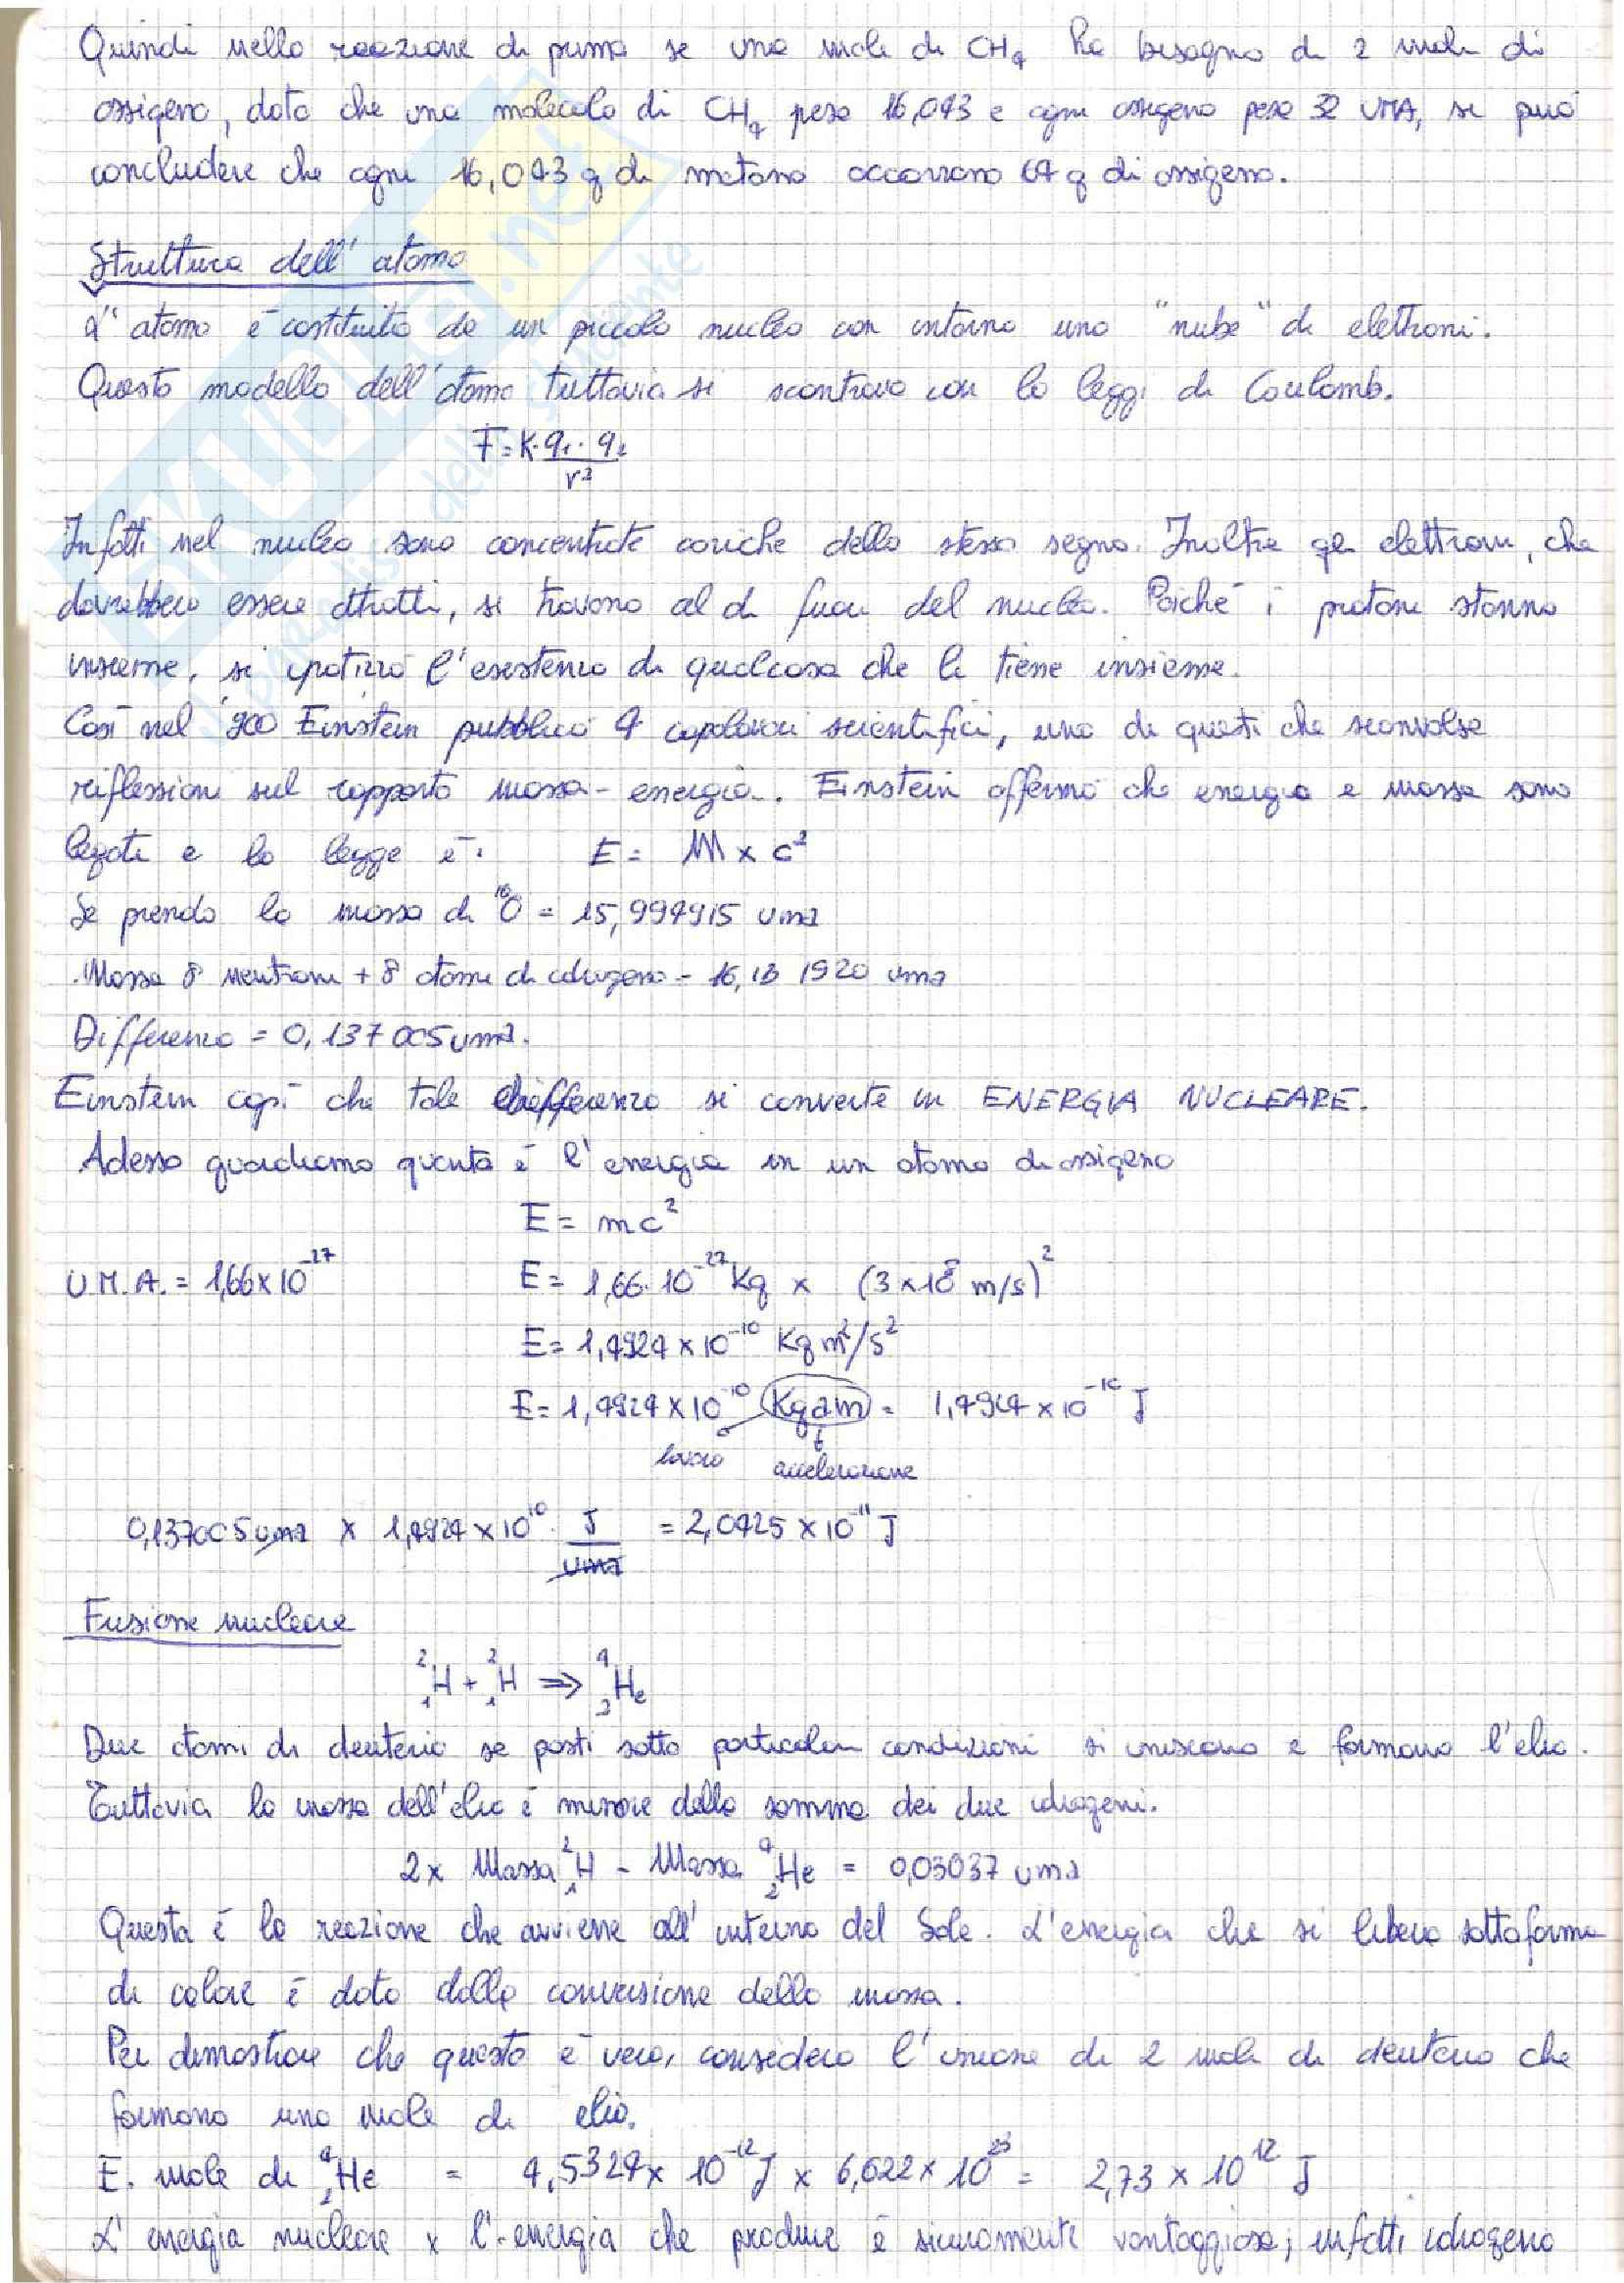 Quindi nella reazione di prima se una mole di CH4 ha bisogno di 2 moli di
ossigeno, dato che una molecola di CH4 pesa 16,043 e ogni ossigeno pesa 32 UMA, si può
concludere che ogni 16,043 g di metano occorrono 64 g di ossigeno.
Struttura dell'atomo
L'atomo è costituito da un piccolo nucleo con intorno una "nube" di elettroni.
Questo modello dell'atomo tuttavia si scontrava con la leggi di Coulomb.
F = K · q1 · q2 / r²
Infatti nel nucleo sono concentrate cariche dello stesso segno. Inoltre gli elettroni, che
dovrebbero essere attratti, si trovano al di fuori del nucleo. Poiché i protoni stanno
insieme, si ipotizzò l'esistenza di qualcosa che li tiene insieme.
Così nel '900 Einstein pubblicò 4 capolavori scientifici, uno di questi che sconvolse
riflessioni sul rapporto massa-energia. Einstein affermò che energia e massa sono
legate e la legge è: E = M x c²
Se prendo la massa di ¹⁶O = 15,994915 uma
Massa 8 neutroni + 8 atomi di idrogeno = 16,13 1920 uma
Differenza = 0,137005 uma.
Einstein capì che tale differenza si converte in ENERGIA NUCLEARE.
Adesso guardiamo quanta è l'energia in un atomo di ossigeno
E = mc²
U.M.A. = 1,66x10⁻²⁷ E = 1,66·10⁻²⁷ Kg x (3x10⁸ m/s)²
E = 1,4924 x 10⁻¹⁰ Kg m²/s²
E = 1,4924 x 10⁻¹⁰ Kg a m = 1,4924 x 10⁻¹⁰ J
lavoro accelerazione
0,137005 uma x 1,4924 x 10⁻¹⁰ · J/uma = 2,0425 x 10⁻¹¹ J
Fusione nucleare
²₁H + ²₁H ⇒ ⁴₂He
Due atomi di deuterio se posti sotto particolari condizioni si uniscono e formano l'elio.
Tuttavia la massa dell'elio è minore della somma dei due idrogeni.
2x Massa ²₁H - Massa ⁴₂He = 0,03037 uma
Questa è la reazione che avviene all'interno del Sole. L'energia che si libera sottoforma
di calore è data dalla conversione della massa.
Per dimostrare che questo è vero, considero l'unione di 2 moli di deuterio che
formano una mole di elio.
E. mole di ⁴₂He = 4,5324 x 10⁻¹² J x 6,022 x 10²³ = 2,73 x 10¹² J
L'energia nucleare x l'energia che produce è sicuramente vantaggiosa; infatti idrogeno